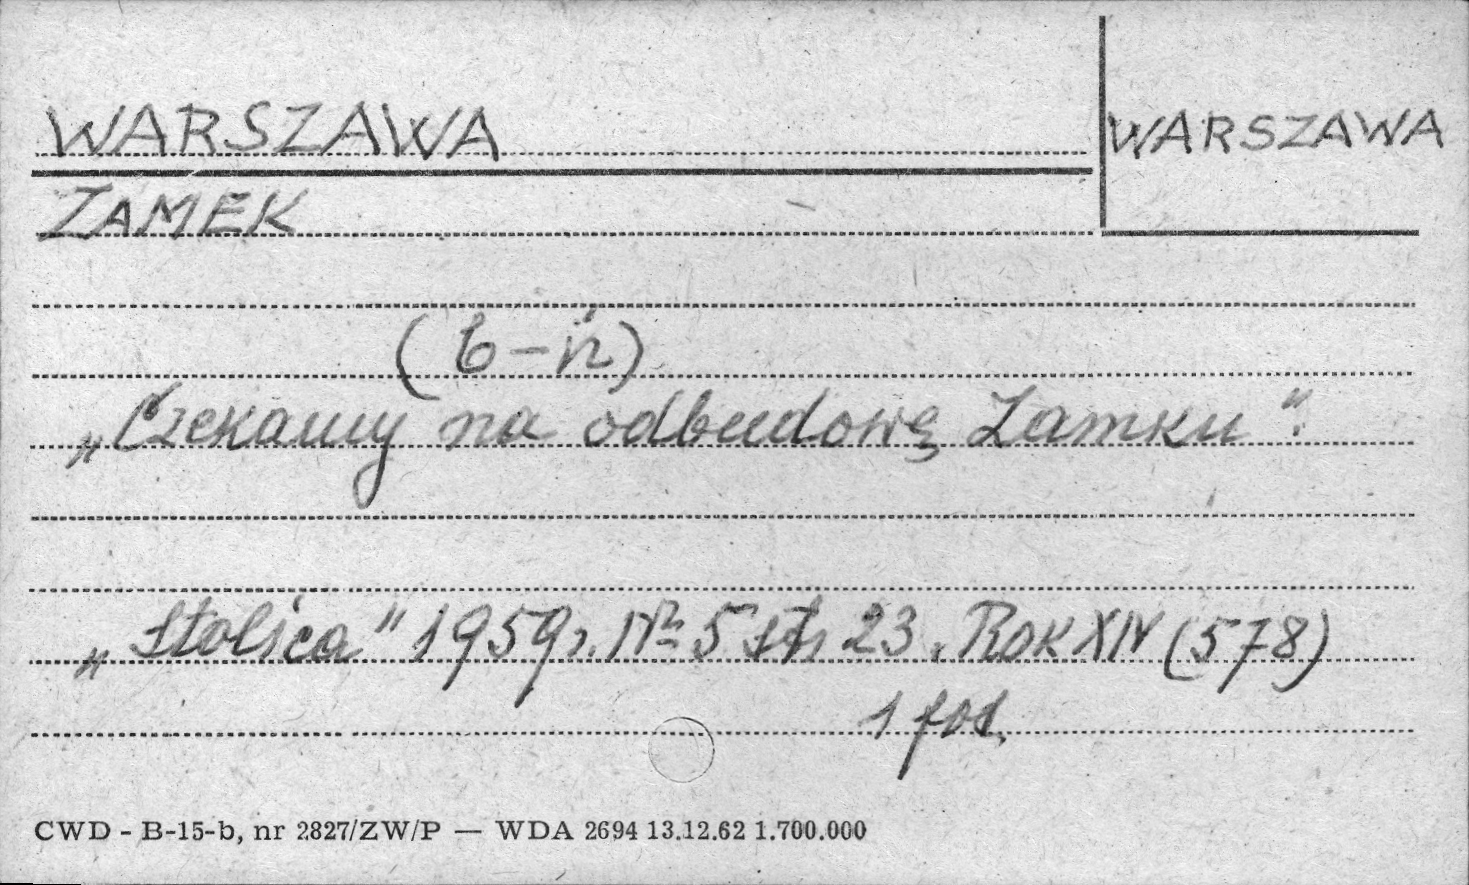 WARSZAWA
WARSZAWA
ZAMEK
(b-ń)
„Czekamy na odbudowę Zamku".
„Stolica" 1959r. Nr 5 str. 23. Rok XIV (578)
1 fot.
CWD - B-15-b, nr 2827/ZW/P — WDA 2694 13.12.62 1.700.000